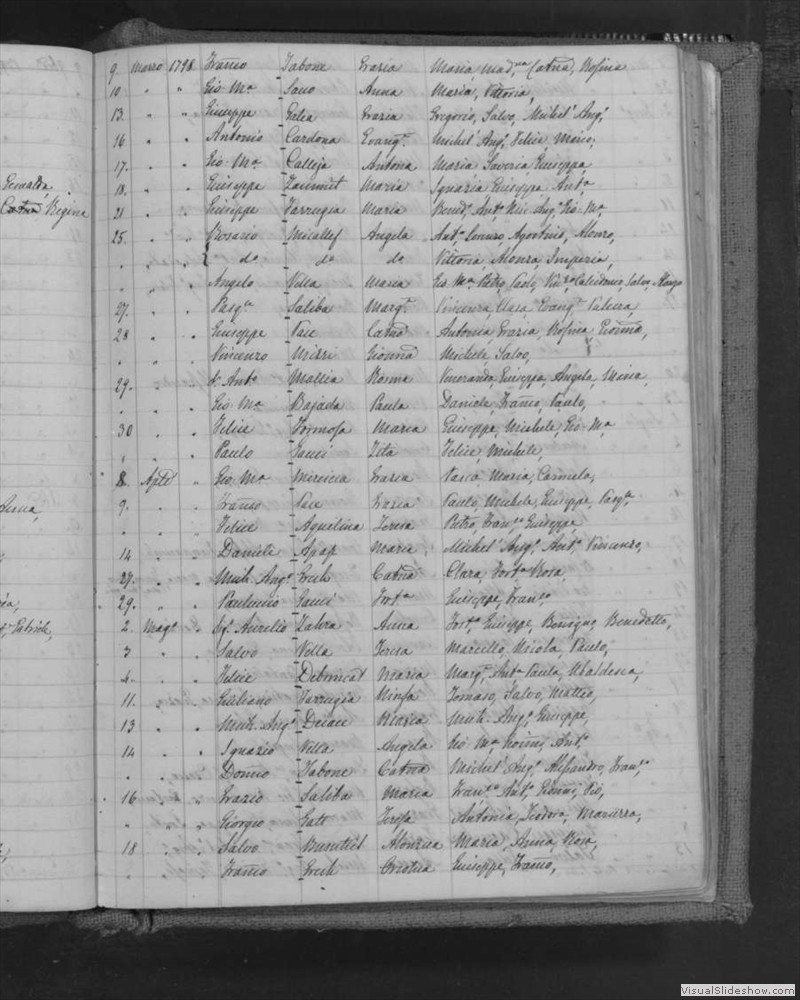 Gesualda,
Catna Regina
9 Marzo 1798 Franco Tabone Grazia Maria, Mad.na Catna, Rosina
10 " " Gio Ma Sano Anna Maria, Vittoria,
13. " " Giuseppe Galea Grazia Gregorio, Salvo, Michel' Ang.o
16 " " Antonio Cardona Evang.a Michel' Ang.o Felice, Mario,
17. " " Gio. Ma Calleja Antonia Maria Saveria, Giuseppa,
18. " " Giuseppe Zammit Maria Ignazia Giuseppa Ant.a
21 " " Giuseppe Farrugia Maria Bened.o Ant.o Mic Ang.o Gio Ma,
25. " " Rosario Micallef Angela Ant.o Agostino, Alonzo,
" " " do do do Vittoria, Alonza, Imperia,
" " " Angelo Vella Maria Gio Ma Pietro, Paolo, Calcedonio, Salvo, Alonzo
27. " " Pasq.le Saliba Marg.a Vincenza, Clara, Evang.a
28 " " Giuseppe Pace Catna Antonia, Grazia, Rosina, Gionna,
" " " Vincenzo Mizzi Gionna Michele, Salvo,
29. " " Ant.o Mallia Rosina Veneranda, Giuseppa, Angela, Maria,
" " " Gio. Ma Bajada Paula Daniele, Franco, Paulo,
30 " " Felice Formosa Maria Giuseppe, Michele, Gio Ma
" " " Paulo Gauci Zita Felice, Michele,
8. Aple " Gio. Ma Mercieca Grazia Maria, Carmelo,
9. " " Franco Pace Grazia Paulo, Michele, Giuseppe, Pasq.le
" " " Felice Aquilina Teresa Pietro, Fran.co Giuseppe
14 " " Daniele Apap Maria Michel' Ang.o Ant.o Vincenzo,
27. " " Mich. Ang.o Grech Catna Clara, Fort.a Rosa,
29. " " Gauci Fort.a Giuseppe, Fran.co
Gabriele,
2. Mag.o " Aurelio Zahra Anna Giuseppe, Benigno, Benedetto,
3 " " Salvo Vella Teresa Marcello, Nicola, Paulo,
4. " " Felice Debonicat Maria Marg.a Ant.a Paula, Ubaldesca,
11. " " Giuliano Farrugia Ninfa Tomaso, Salvo, Matteo,
13 " " Mich. Ang.o Maria Mich. Ang.o Giuseppe,
14 " " Ignazio Vella Angela Gio Ma Ant.o
" " " Tabone Catna Michel' Ang.o Alessandro, Fran.co
16 " " Grazio Saliba Maria Fran.co Ant.o Pio,
" " " Giorgio Gatt Teresa Antonia, Teodora,
18 " " Salvo Buontiel Alonza Maria, Anna, Rosa,
" " " Franco Grech Cristina Giuseppe, Franco,
VisualSlideshow.com